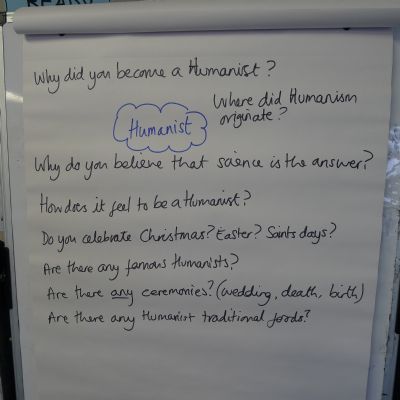 Why did you become a Humanist?
Where did Humanism
originate?
Humanist
Why do you believe that science is the answer?
How does it feel to be a Humanist?
Do you celebrate Christmas? Easter? Saints days?
Are there any famous Humanists?
Are there any ceremonies? (wedding, death, birth)
Are there any Humanist traditional foods?